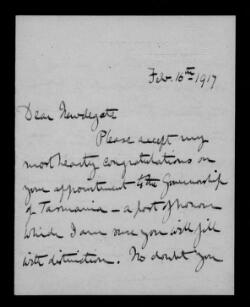 Feb. 16th 1917
Dear Newdegate
Please accept my
most hearty congratulations on
your appointment to the Governorship
of Tasmania - a post of honour
which I am sure you will fill
with distinction. No doubt you